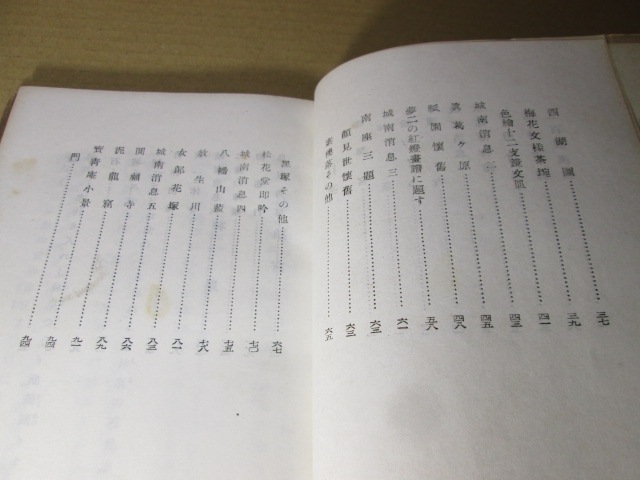 西湖圖……三七
梅花文樣茶埦……三九
色繪十二文錢文皿……四一
城南消息二……四三
眞葛ケ原……四五
祇園懷舊……四八
夢二の紅燈畫譜に題す……五八
城南消息三……六一
南座三題……六三
顏見世懷舊……六三
その他……六五
黑塚その他……六七
松花堂卽吟……七〇
城南消息四……七五
八幡山莊……七八
放生川……八一
女郞花塚……八三
城南消息五……八六
圓福寺……八九
泥龍窟……九一
寳靑庵小景……九四